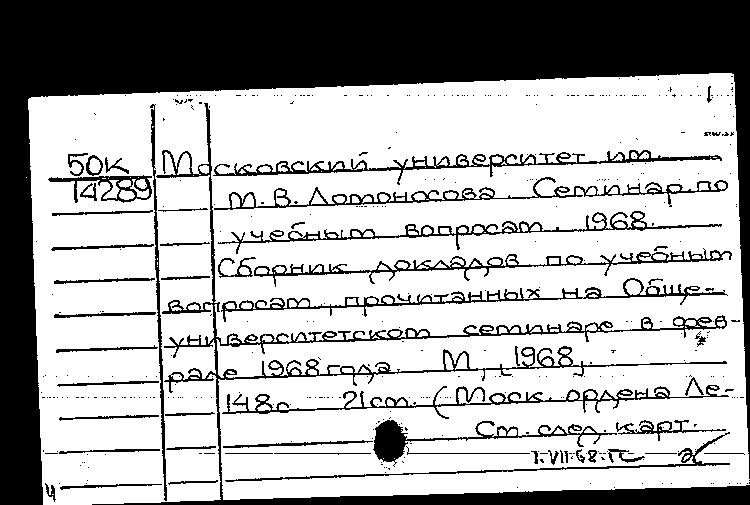 1
50К Московский университет им.
14289 М.В. Ломоносова. Семинар по
учебным вопросам. 1968.
Сборник докладов по учебным
вопросам, прочитанных на Обще-
университетском семинаре в фев-
рале 1968 года. М., [1968].
148с. 21см. (Моск. ордена Ле-
См. след. карт.
1.VII.68.ГС